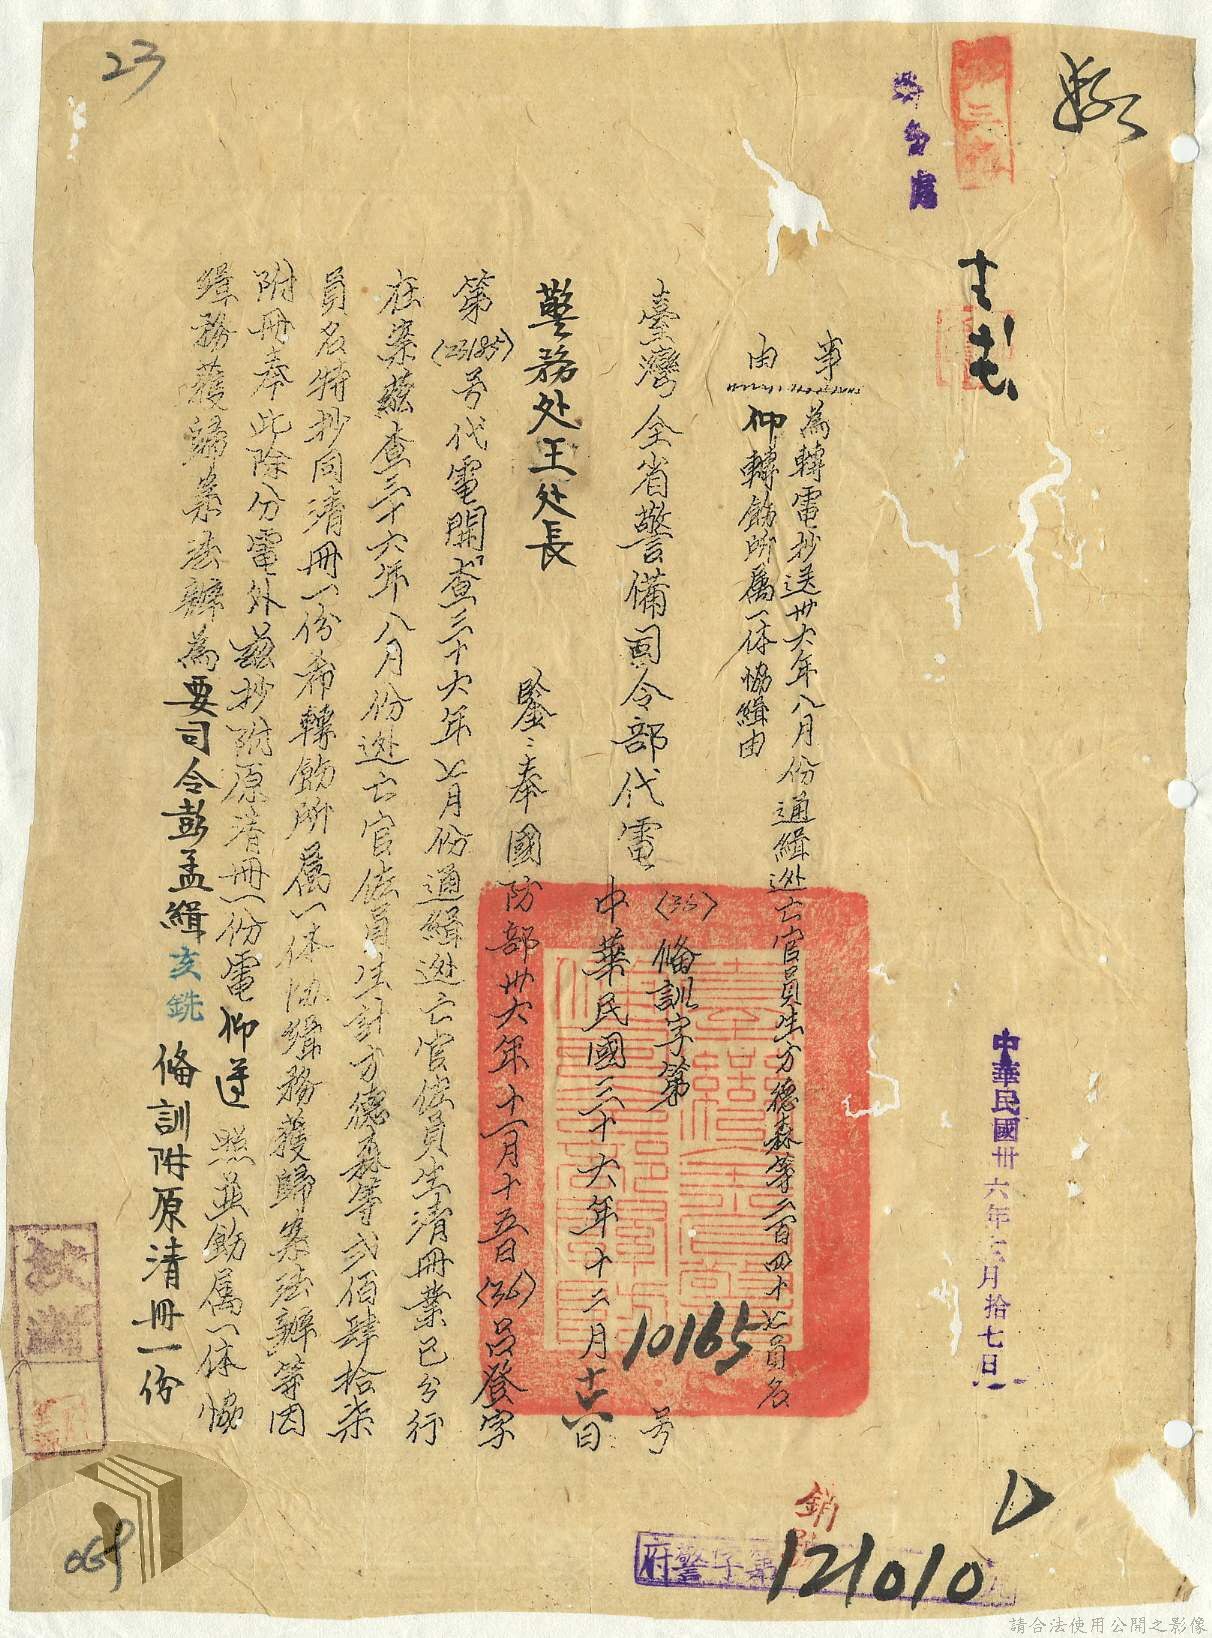 事由
為轉電抄送卅六年八月份通緝逃亡官員生方德森等二百四十七員名
仰轉飭所屬一体協緝由
臺灣全省警備司令部代電
(36)備訓字第10165号
中華民國三十六年十二月十六日
警務处王处長
鑒:奉國防部卅六年十一月十五日(36)呂登字
第(23185)号代電開「查三十六年七月份通緝逃亡官佐員生清冊業已分行
在案茲查三十六年八月份逃亡官佐員生計方德森等弍佰肆拾柒
員名特抄同清冊一份希轉飭所屬一体協緝務獲歸案法辦等因
附冊奉此除分電外茲抄附原清冊一份電仰遵照並飭属一体協
緝務獲歸案法辦為要司令彭孟緝亥銑備訓附原清冊一份
中華民國卅六年十二月拾七日
府警字第121010
銷號
23
069
請合法使用公開之影像